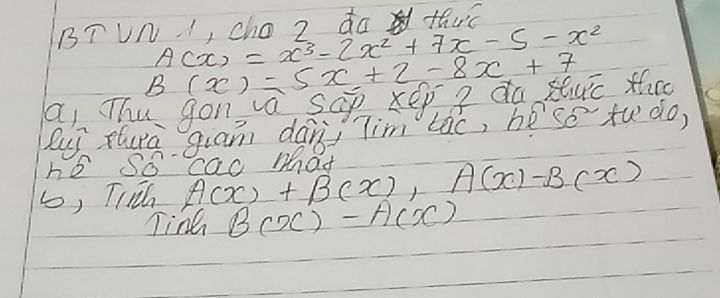 BTVN 1, cho 2 đa thức
A(x) = x³ - 2x² + 7x - 5 - x²
B(x) = 5x + 2 - 8x + 7
a, Thu gọn và sắp xếp 2 đa thức theo
luỹ thừa giảm dần, Tìm bậc, hệ số tự do,
hệ số cao nhất
b, Tính A(x) + B(x), A(x) - B(x)
Tính B(x) - A(x)